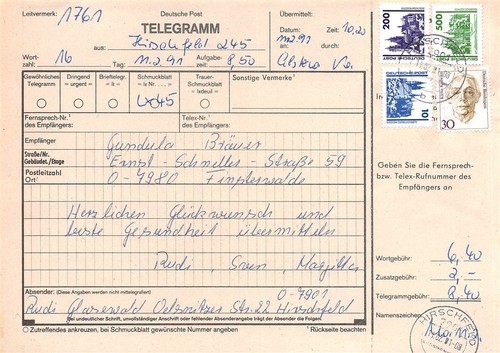 Leitvermerk: 1761
Deutsche Post
TELEGRAMM
aus: Hirschfeld 245
Übermittelt:
Datum: Zeit: 10.20
an: durch:
Wort-
zahl: 16
Tag: 11.2.91
Aufgabe-
zeit: 8,50
Gewöhnliches
Telegramm
Dringend
= urgent =
Brieftelegr.
= lt =
Schmuckblatt
= lx Nr. .... =
Lx45
Trauer-
Schmuckblatt
= lxdeuil =
Sonstige Vermerke¹
Fernsprech-Nr.¹
des Empfängers:
Telex-Nr.¹
des Empfängers:
Empfänger
Gundula Bräuer
Straße/Nr.
Gebäudet./Etage
Ernst-Schneller-Straße 59
Postleitzahl
Ort¹
O-7980 Finsterwalde
Herzlichen Glückwunsch und
beste Gesundheit übermitteln
Rudi, Sven, Magitta
Absender: (Diese Angaben werden nicht mitübermittelt)
O-7901
Rudi Glasewald Oelsnitzer Str. 22 Hirschfeld
Bei undeutlicher Schrift, unvollständiger Anschrift oder fehlender Absenderangabe trägt der Absender die Folgen.
○ Zutreffendes ankreuzen, bei Schmuckblatt gewünschte Nummer angeben
¹ Rückseite beachten
200
500
DEUTSCHE POST
10
30
Geben Sie die Fernsprech-
bzw. Telex-Rufnummer des
Empfängers an
Wortgebühr: 6,40
Zusatzgebühr: 2,-
Telegrammgebühr: 8,40
Namenszeichen:
HIRSCHFELD